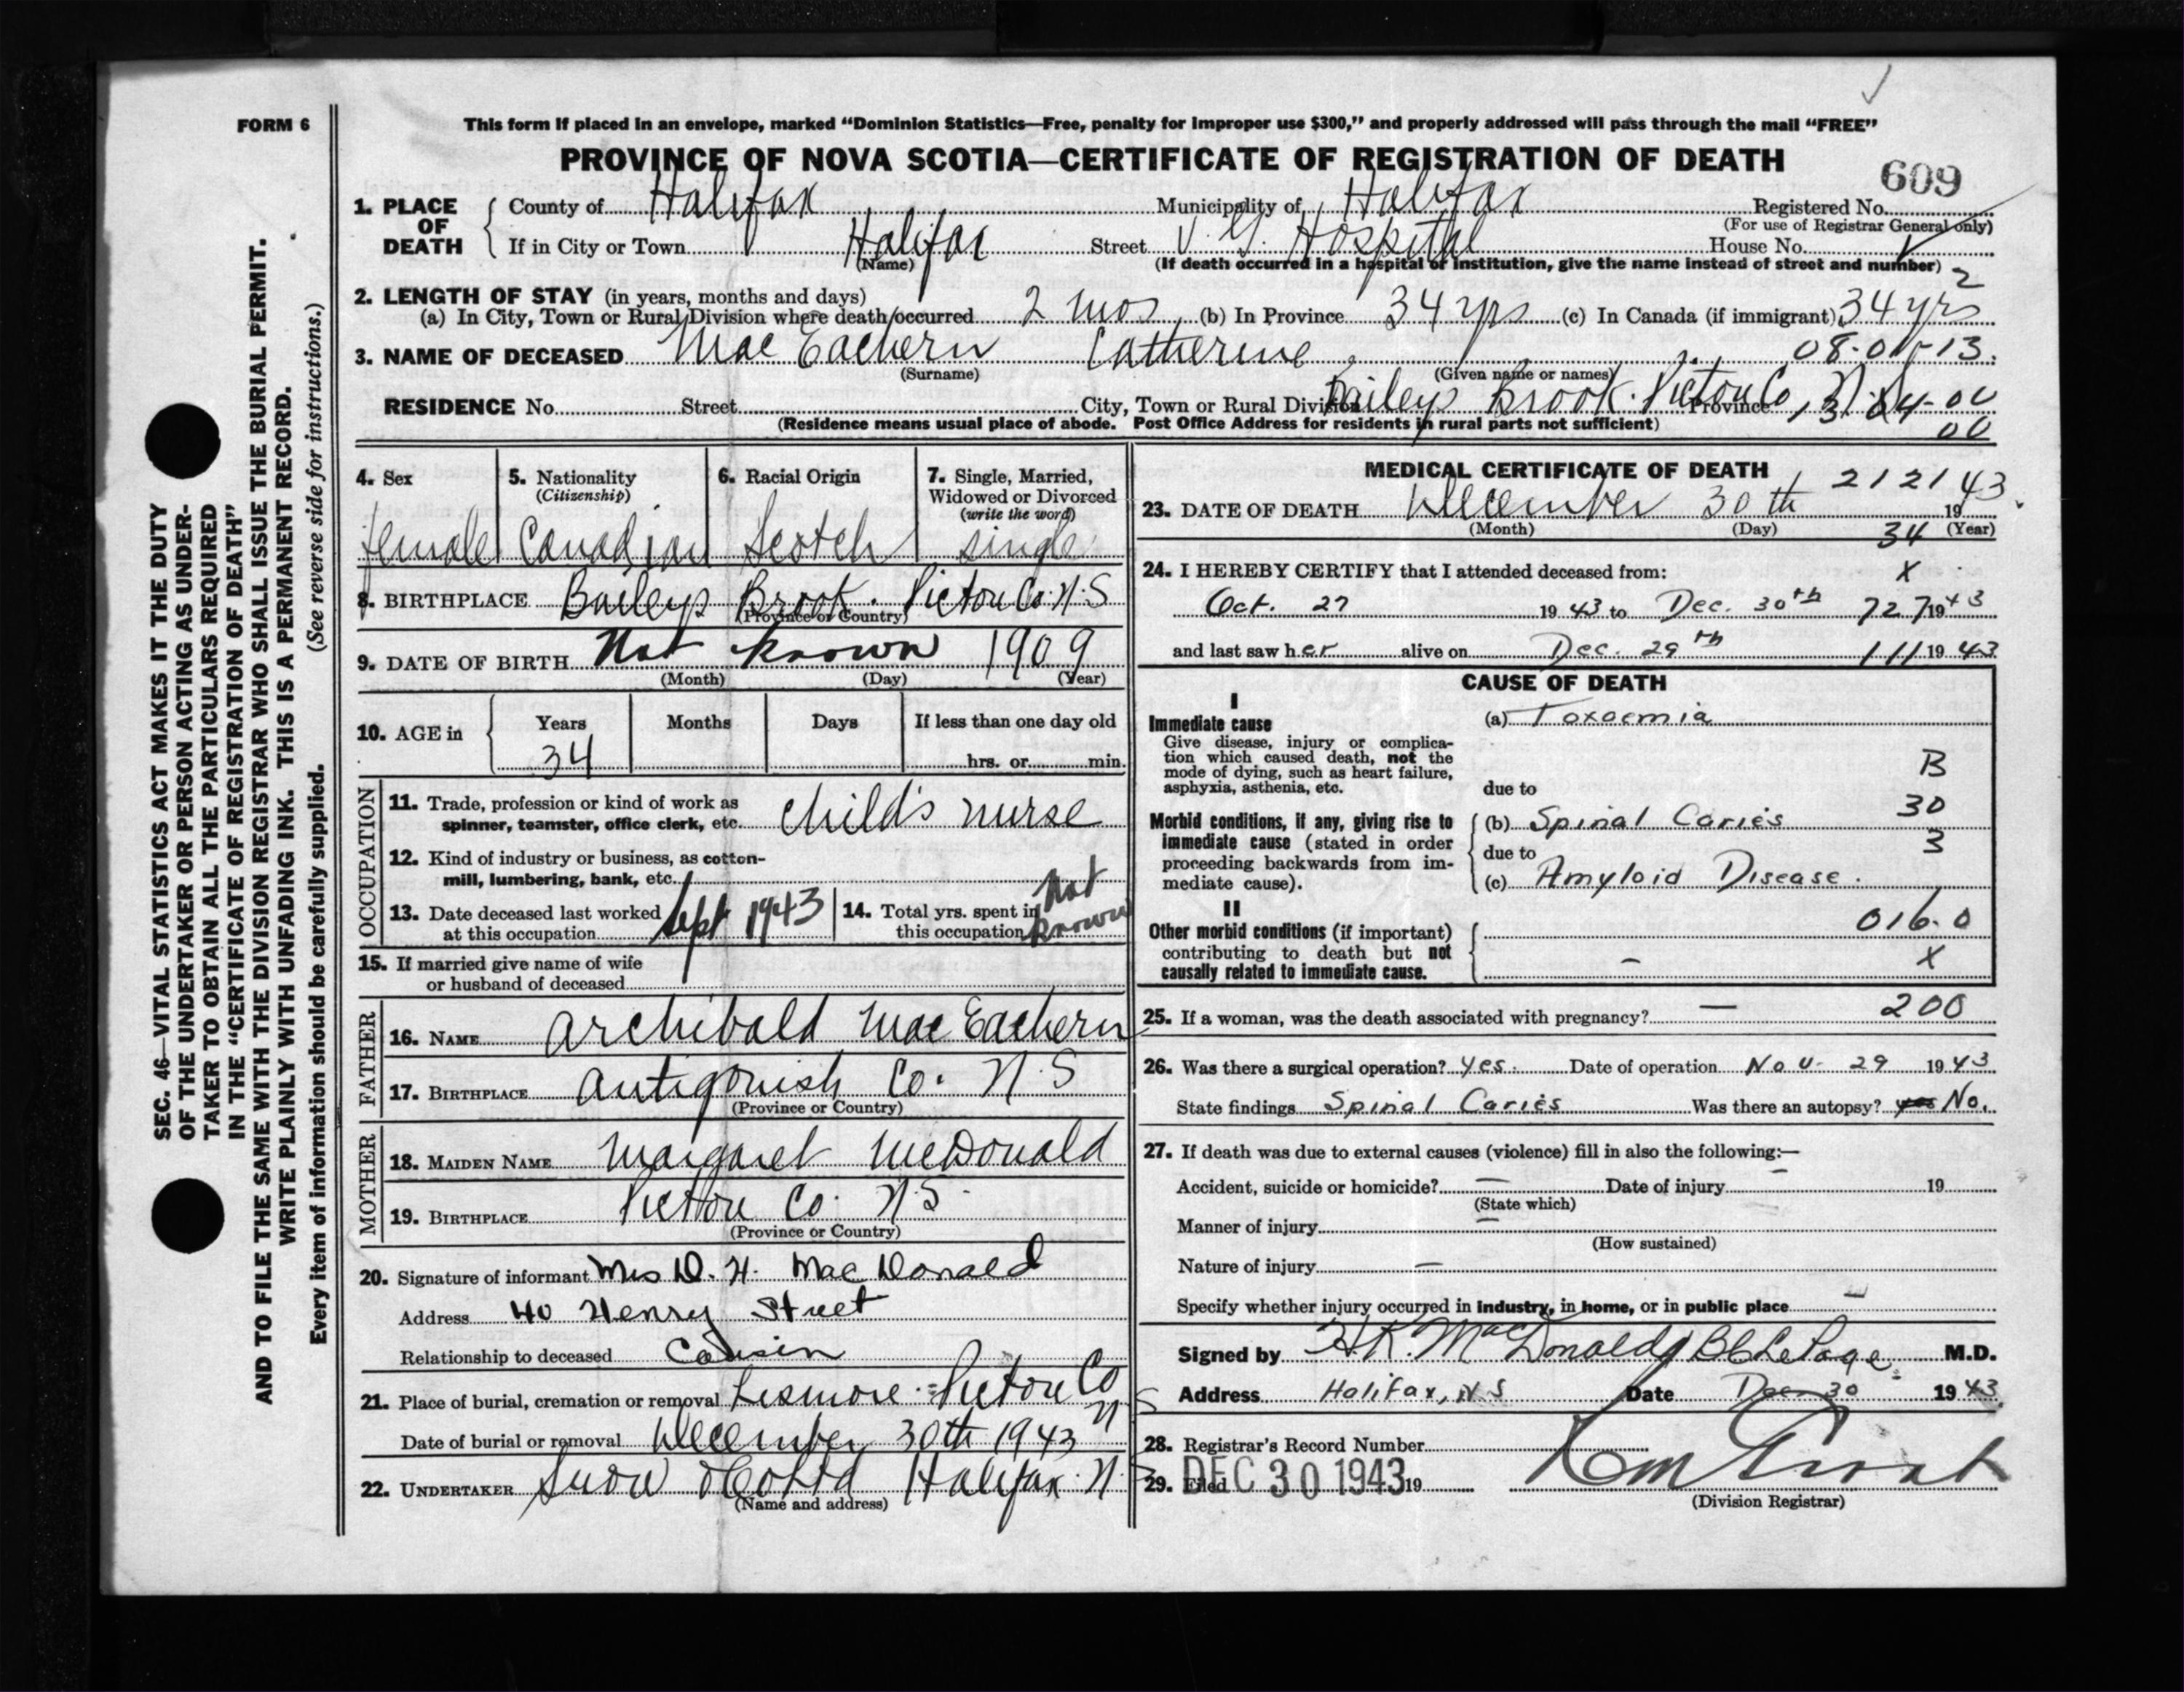 FORM 6
This form if placed in an envelope, marked “Dominion Statistics—Free, penalty for improper use $300,” and properly addressed will pass through the mail “FREE”
PROVINCE OF NOVA SCOTIA—CERTIFICATE OF REGISTRATION OF DEATH
609
1. PLACE OF DEATH County of Halifax Municipality of Halifax Registered No.
(For use of Registrar General only)
If in City or Town Halifax Street V. G. Hospital House No.
(Name) (If death occurred in a hospital or institution, give the name instead of street and number)
2
2. LENGTH OF STAY (in years, months and days)
(a) In City, Town or Rural Division where death occurred 2 mos (b) In Province 34 yrs (c) In Canada (if immigrant) 34 yrs
3. NAME OF DECEASED Mac Eachern Catherine 08-01-13
(Surname) (Given name or names)
RESIDENCE No. Street City, Town or Rural Division Baileys Brook. Pictou Co, N.S. Province
(Residence means usual place of abode. Post Office Address for residents in rural parts not sufficient)
00
4. Sex 5. Nationality (Citizenship) 6. Racial Origin 7. Single, Married, Widowed or Divorced (write the word)
female Canadian Scotch single
8. BIRTHPLACE Baileys Brook. Pictou Co. N.S
(Province or Country)
9. DATE OF BIRTH Not known 1909
(Month) (Day) (Year)
10. AGE in Years Months Days If less than one day old
34 hrs. or min.
OCCUPATION
11. Trade, profession or kind of work as spinner, teamster, office clerk, etc. child's nurse
12. Kind of industry or business, as cotton-mill, lumbering, bank, etc.
13. Date deceased last worked at this occupation Sept 1943 14. Total yrs. spent in this occupation not known
15. If married give name of wife or husband of deceased
FATHER
16. NAME Archibald Mac Eachern
17. BIRTHPLACE Antigonish Co. N.S
(Province or Country)
MOTHER
18. MAIDEN NAME Margaret McDonald
19. BIRTHPLACE Pictou Co. N.S.
(Province or Country)
20. Signature of informant Mrs D. H. Mac Donald
Address 40 Henry Street
Relationship to deceased Cousin
21. Place of burial, cremation or removal Lismore - Pictou Co N S
Date of burial or removal December 30th 1943
22. UNDERTAKER Snow & Co Ltd Halifax. N.S
(Name and address)
MEDICAL CERTIFICATE OF DEATH
21 21
23. DATE OF DEATH December 30th 1943
(Month) (Day) (Year)
34
24. I HEREBY CERTIFY that I attended deceased from:
X
Oct. 27 1943 to Dec. 30th 727 1943
and last saw her alive on Dec. 29th 111 1943
CAUSE OF DEATH
I
Immediate cause (a) Toxaemia
Give disease, injury or complica-
tion which caused death, not the
mode of dying, such as heart failure,
asphyxia, asthenia, etc. due to
B
30
Morbid conditions, if any, giving rise to (b) Spinal Caries
immediate cause (stated in order due to 3
proceeding backwards from im-
mediate cause). (c) Amyloid Disease.
II
Other morbid conditions (if important) 016.0
contributing to death but not
causally related to immediate cause. – X
25. If a woman, was the death associated with pregnancy? — 200
26. Was there a surgical operation? Yes. Date of operation Nov. 29 1943
State findings Spinal Caries Was there an autopsy? yes No.
27. If death was due to external causes (violence) fill in also the following:—
Accident, suicide or homicide? — Date of injury — 19
(State which)
Manner of injury —
(How sustained)
Nature of injury —
Specify whether injury occurred in industry, in home, or in public place —
Signed by H.R. MacDonald / B C LePage M.D.
Address Halifax, N.S Date Dec 30 1943
28. Registrar's Record Number
29. Filed DEC 30 1943 19
(Division Registrar)
SEC. 46—VITAL STATISTICS ACT MAKES IT THE DUTY
OF THE UNDERTAKER OR PERSON ACTING AS UNDER-
TAKER TO OBTAIN ALL THE PARTICULARS REQUIRED
IN THE “CERTIFICATE OF REGISTRATION OF DEATH”
AND TO FILE THE SAME WITH THE DIVISION REGISTRAR WHO SHALL ISSUE THE BURIAL PERMIT.
WRITE PLAINLY WITH UNFADING INK. THIS IS A PERMANENT RECORD.
Every item of information should be carefully supplied. (See reverse side for instructions.)